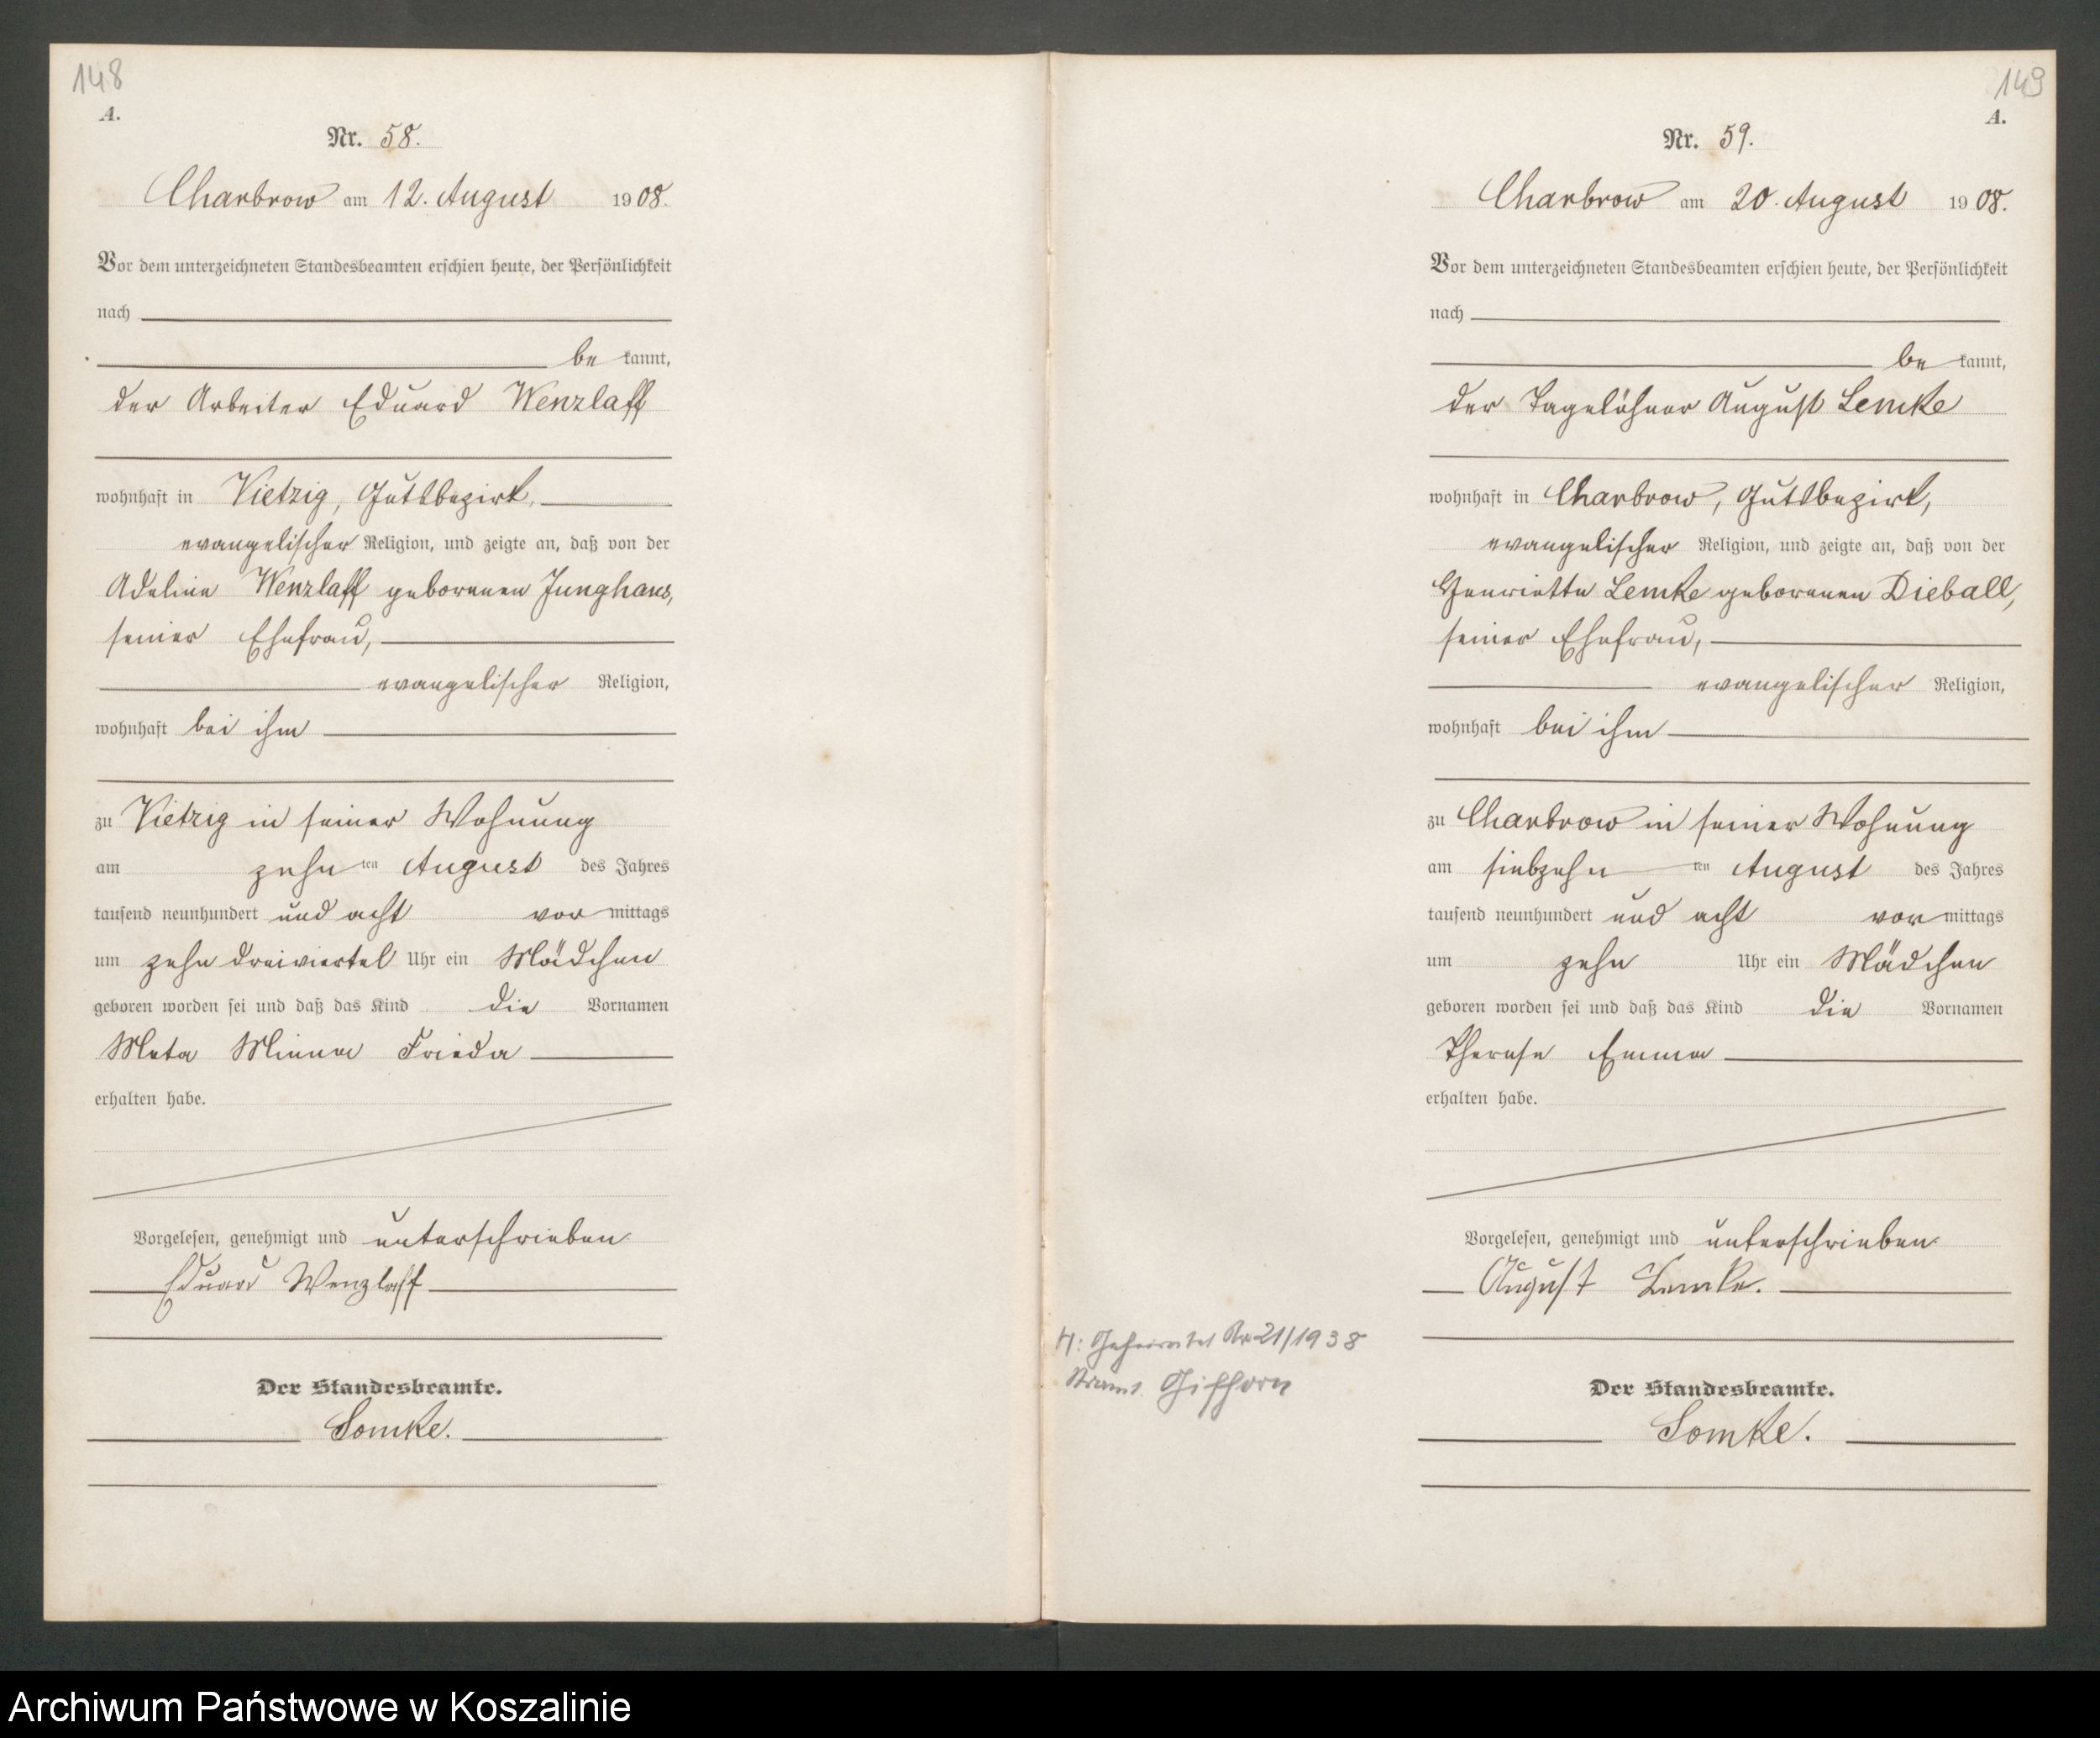 148
A.
Nr. 58.
Charbrow am 12. August 1908.
Vor dem unterzeichneten Standesbeamten erschien heute, der Persönlichkeit
nach
be kannt,
der Arbeiter Eduard Wenzlaff
wohnhaft in Vietzig, Gutsbezirk,
evangelischer Religion, und zeigte an, daß von der
Adeline Wenzlaff geborenen Junghans,
seiner Ehefrau,
evangelischer Religion,
wohnhaft bei ihm
zu Vietzig in seiner Wohnung
am zehn ten August des Jahres
tausend neunhundert und acht vor mittags
um zehn dreiviertel Uhr ein Mädchen
geboren worden sei und daß das Kind die Vornamen
Meta Minna Frieda
erhalten habe.
Vorgelesen, genehmigt und unterschrieben
Eduard Wenzlaff
Der Standesbeamte.
Somke.
149
A.
Nr. 59.
Charbrow am 20. August 1908.
Vor dem unterzeichneten Standesbeamten erschien heute, der Persönlichkeit
nach
be kannt,
der Tagelöhner August Lemke
wohnhaft in Charbrow, Gutsbezirk,
evangelischer Religion, und zeigte an, daß von der
Henriette Lemke geborenen Dieball,
seiner Ehefrau,
evangelischer Religion,
wohnhaft bei ihm
zu Charbrow in seiner Wohnung
am siebzehn ten August des Jahres
tausend neunhundert und acht vor mittags
um zehn Uhr ein Mädchen
geboren worden sei und daß das Kind die Vornamen
Therese Emma
erhalten habe.
Vorgelesen, genehmigt und unterschrieben
August Lemke.
H: Geheiratet Nr 21/1938
Gifhorn
Der Standesbeamte.
Somke.
Archiwum Państwowe w Koszalinie